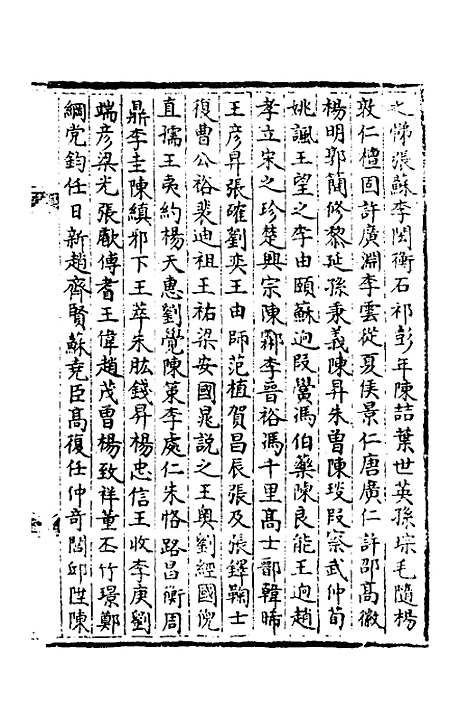 之悌張蘇李閎衡石祁彭年陳喆葉世英孫琮毛隨楊
敦仁檀固許廣淵李雲從夏侯景仁唐廣仁許邵高徽
楊明郭蘭修黎延孫秉義陳昇朱曽陳琰段察武仲荀
姚諷王望之李由頤蘇逈段黌馮伯藥陳良能王逈趙
孝立宋之珍楚興宗陳鄰李晉裕馮千里髙士鄙韓晞
王彦昇張確劉奕王由師范植賀昌辰張及張鐸鞠士
復曹公裕裴迪祖王祐梁安國晁說之王奥劉經國倪
直孺王夷約楊天惠劉覺陳策李處仁朱恪路昌衡周
鼎李圭陳縝邪下王萃朱肱錢昇楊忠信王收李庚劉
端彦梁光張歐傅耆王偉趙茂曹楊致祥董丕竹璟鄭
綱党鈞任日新趙齊賢蘇堯臣髙復任仲竒閻邱陞陳